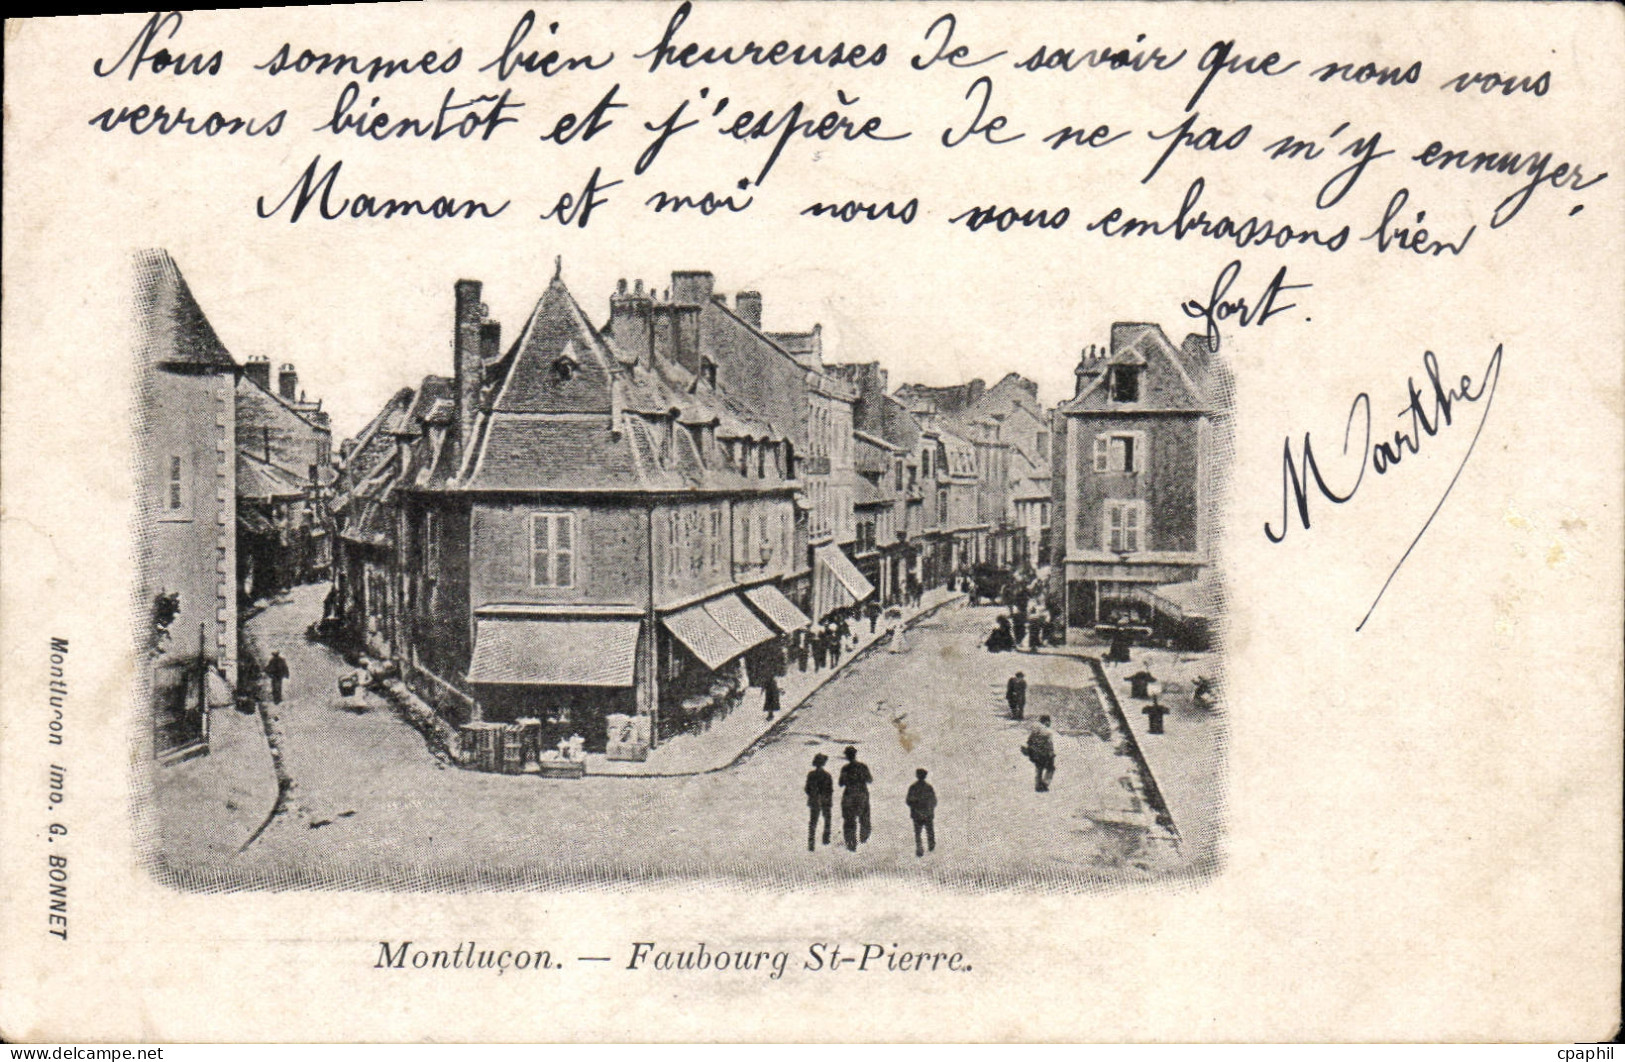 Nous sommes bien heureuses de savoir que nous vous
verrons bientôt et j'espère de ne pas m'y ennuyer.
Maman et moi nous vous embrassons bien
fort.
Marthe
Montluçon imp. G. BONNET
Montluçon. — Faubourg St-Pierre.
cpaphil